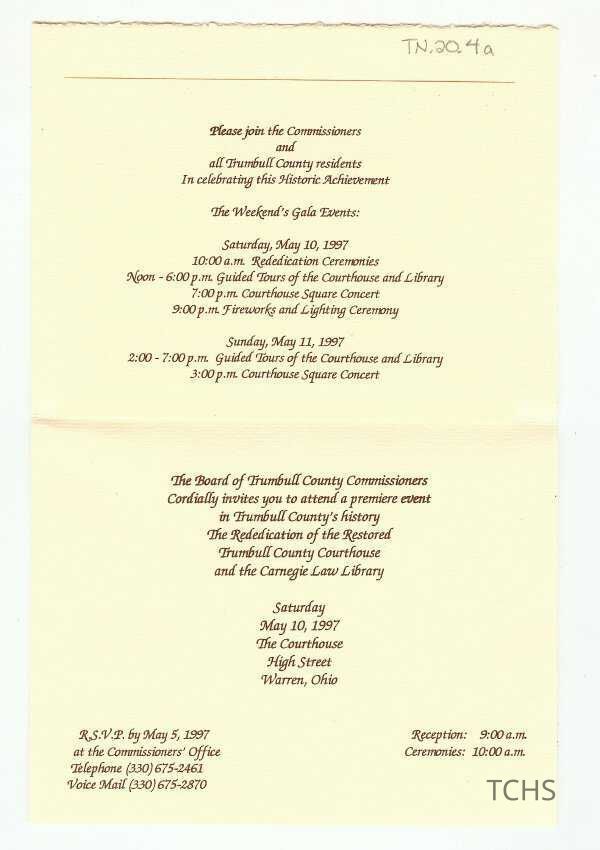 TN.20.4a
Please join the Commissioners
and
all Trumbull County residents
In celebrating this Historic Achievement
The Weekend's Gala Events:
Saturday, May 10, 1997
10:00 a.m. Rededication Ceremonies
Noon - 6:00 p.m. Guided Tours of the Courthouse and Library
7:00 p.m. Courthouse Square Concert
9:00 p.m. Fireworks and Lighting Ceremony
Sunday, May 11, 1997
2:00 - 7:00 p.m. Guided Tours of the Courthouse and Library
3:00 p.m. Courthouse Square Concert
The Board of Trumbull County Commissioners
Cordially invites you to attend a premiere event
in Trumbull County's history
The Rededication of the Restored
Trumbull County Courthouse
and the Carnegie Law Library
Saturday
May 10, 1997
The Courthouse
High Street
Warren, Ohio
R.S.V.P. by May 5, 1997
at the Commissioners' Office
Telephone (330) 675-2461
Voice Mail (330) 675-2870
Reception: 9:00 a.m.
Ceremonies: 10:00 a.m.
TCHS